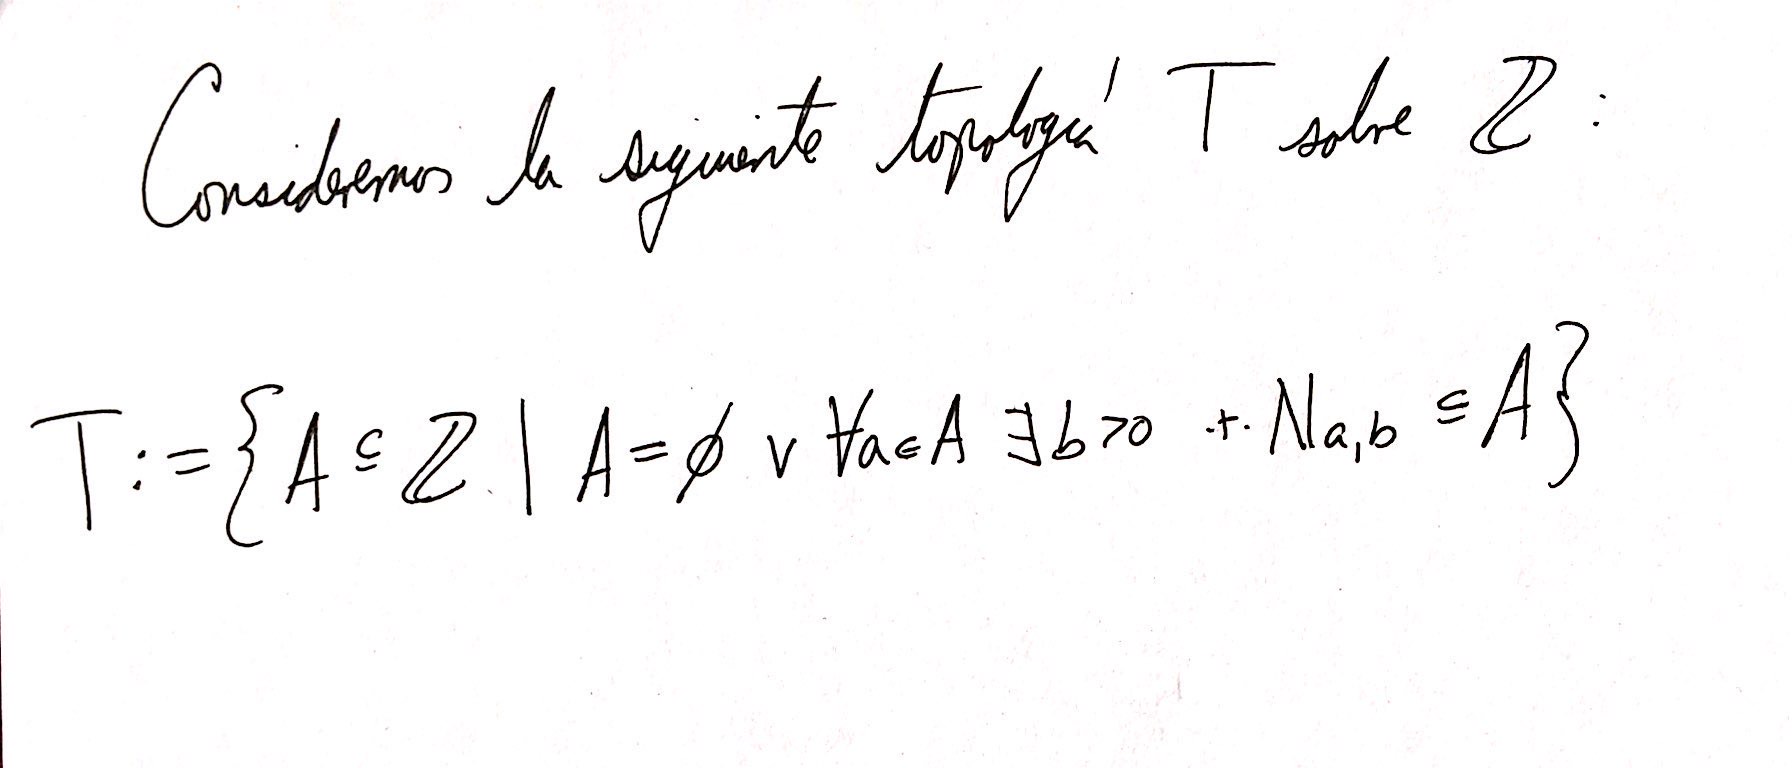 Consideremos la siguiente topología T sobre ℤ:
T:={A⊆ℤ | A=∅ ∨ ∀a∈A ∃b>0 .t. Na,b ⊆ A}